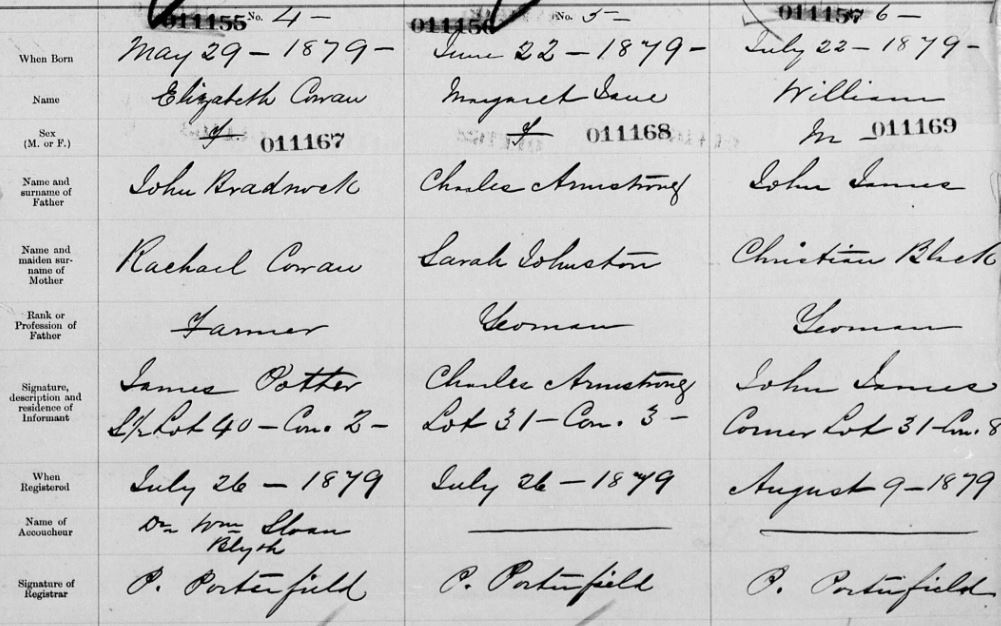 011155 No. 4 – 011156 No. 5 – 011157 6 –
When Born May 29 – 1879 – June 22 – 1879 – July 22 – 1879 –
Name Elizabeth Cowan Margaret Jane William
Sex (M. or F.) F. 011167 F 011168 M – 011169
Name and surname of Father John Bradnock Charles Armstrong John James
Name and maiden surname of Mother Rachael Cowan Sarah Johnston Christian Black
Rank or Profession of Father Farmer Yeoman Yeoman
Signature, description and residence of Informant James Potter Charles Armstrong John James
S½ Lot 40 – Con. 2 – Lot 31 – Con. 3 – Corner Lot 31 – Con. 8
When Registered July 26 – 1879 July 26 – 1879 August 9 – 1879
Name of Accoucheur Dr Wm Sloan
Blyth
Signature of Registrar P. Porterfield P. Porterfield P. Porterfield